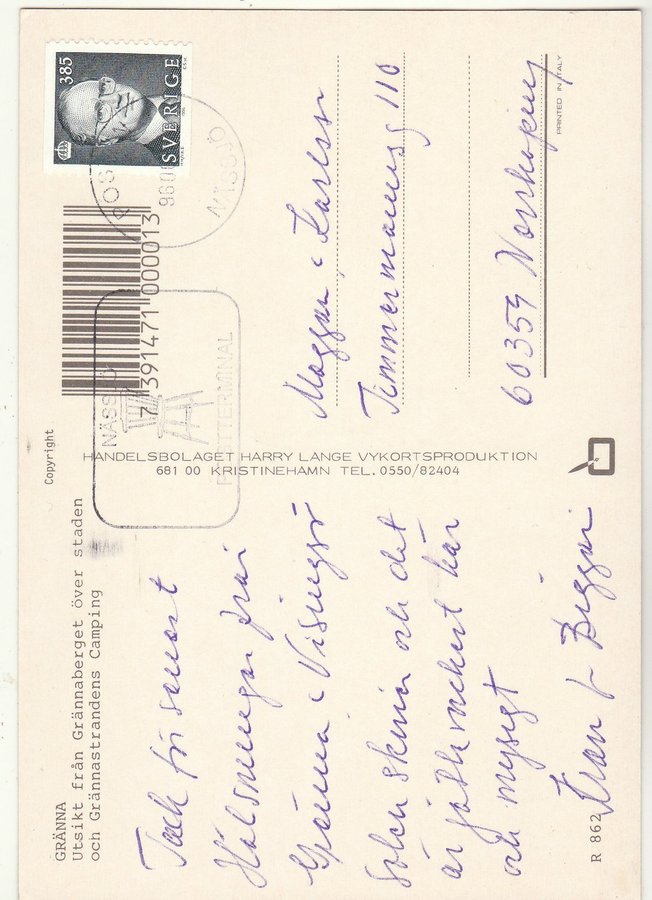 GRÄNNA
Utsikt från Grännaberget över staden
och Grännastrandens Camping
Tack för senast
Hälsningar från
Gränna & Visingsö
Solen skiner och det
är jättevackert här
och mysigt
Kram fr Biggan
R 862
Copyright
HANDELSBOLAGET HARRY LANGE VYKORTSPRODUKTION
681 00 KRISTINEHAMN TEL. 0550/82404
7 391471 000013
NÄSSJÖ
385
SVERIGE
NÄSSJÖ
Maggan & Karlsson
Timmermansg 110
60359 Norrköping
PRINTED IN ITALY